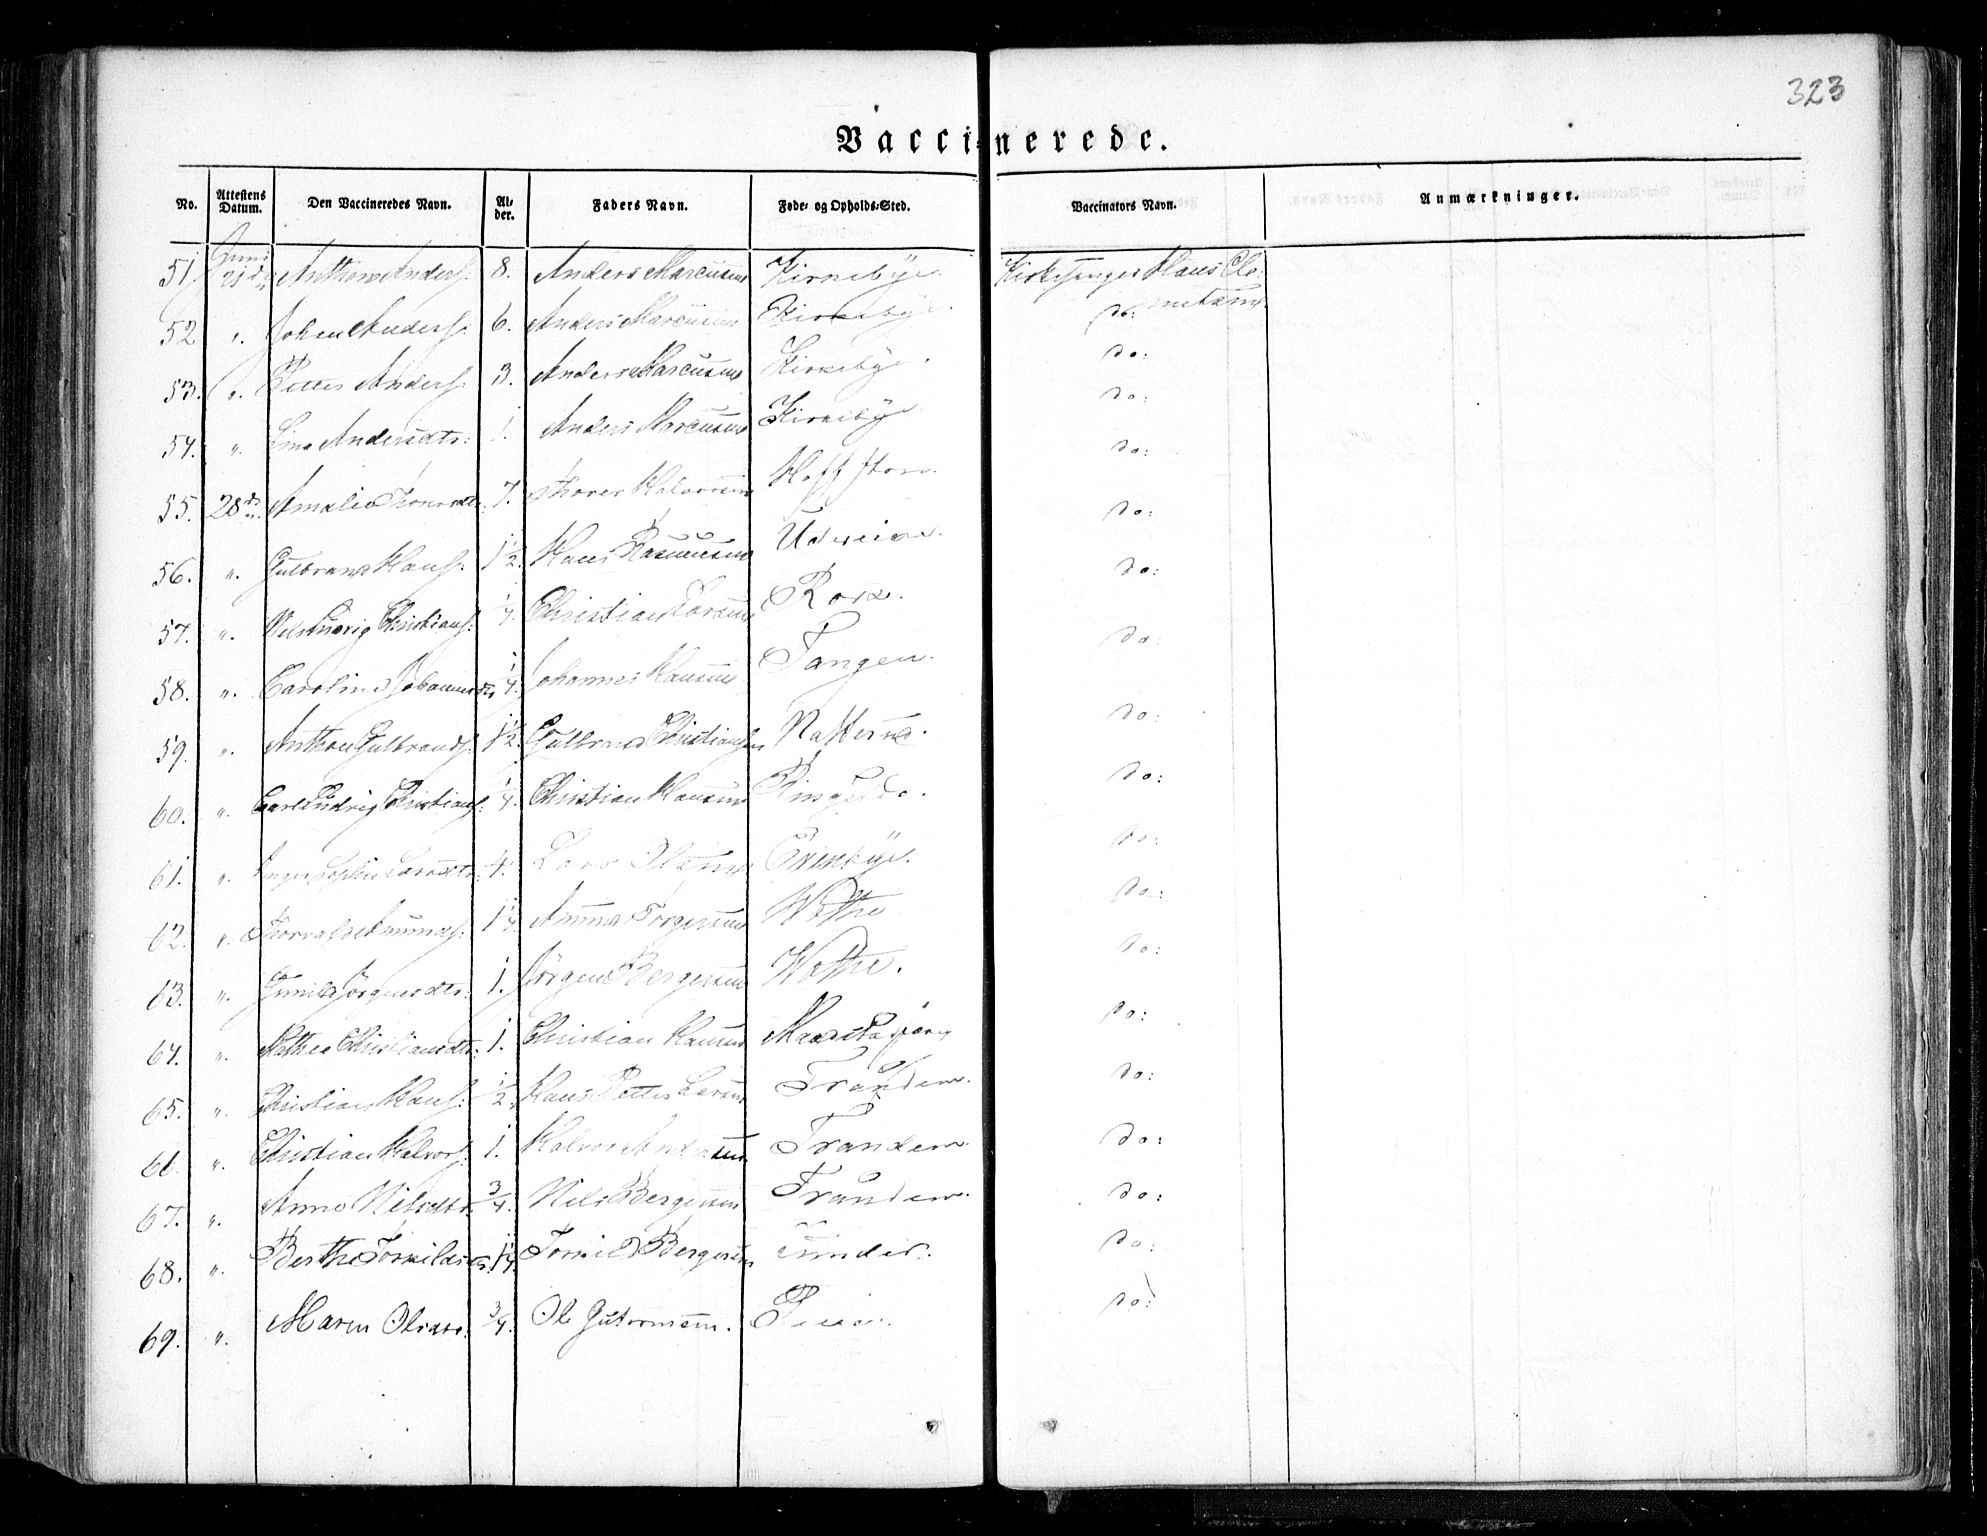 323
Vaccinerede.
No. Attestens Datum. Den Vaccineredes Navn. Alder. Faders Navn. Føde- og Opholds-Sted. Vaccinators Navn. Anmærkninger.
51 Juni 21 d. Anthon Anders. 8. Anders Marcusen Kirkebye. Kirkesanger Hans Cle-
metsen
52 ". Johan Anders. 6. Anders Marcusen Kirkebye. do:
53. ". Petter Anders. 3. Anders Marcusen Kirkebye. do:
54. ". Anders dtr: 1. Anders Marcusen Kirkebye do:
55. 28 d. Amalie 7. Thorer Halvorsen Hoff store. do:
56. ". Gulbrand Hans: 1 1/2. Hans Rasmusen Udneiee. do:
57. ". Christians: 1/4 Christian Larsen do:
58. ". Caroline Johannesdtr 1/4. Johannes Hansen Tangen. do:
59. ". Anthon Gulbrands. 1 1/2. Gulbrand Christiansen do:
60. ". Carl Ludvig Christians: 1/4. Christian Hansen do:
61. ". Inger Sophie Larsdtr: 4. Lars Olsen Evenbye. do:
62. ". 1 1/4 Amund Torgersen Wathe do:
63. ". Jörgensdtr: 1. Jörgen Bergersen Wathe. do:
64. ". Mathea Christiansdtr: 1. Christian Hansen do:
65. ". Christian Hans: 1/2. Hans Petter Larsen Tranden. do:
66. ". Christian Halvors: 1. Halvor Andersen Tranden. do:
67. ". Anne Nilsdtr. 3/4. Nils Bergersen Tranden. do:
68. ". Berthe Torkildsdtr. 1 1/4. Torkild Bergersen do:
69. ". Maren Olsdtr. 3/4. Ole Gutormsen. do: